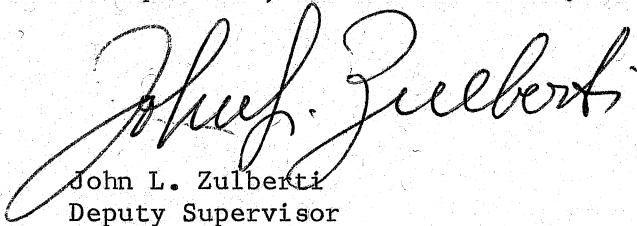 John L. Zulberti
John L. Zulberti
Deputy Supervisor